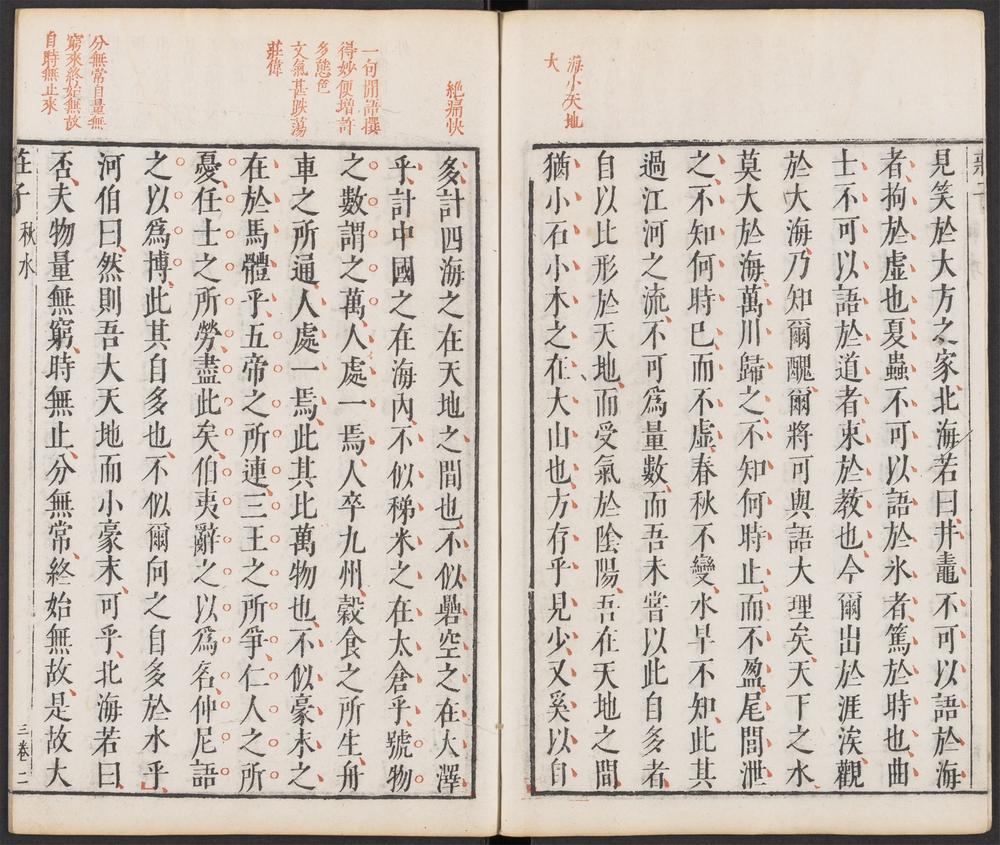 海小天地
大
見笑於大方之家北海若曰井鼃不可以語於海
者拘於虛也夏蟲不可以語於氷者篤於時也曲
士不可以語於道者束於教也今爾出於涯涘觀
於大海乃知爾醜爾將可與語大理矣天下之水
莫大於海萬川歸之不知何時止而不盈尾閭泄
之不知何時已而不虛春秋不變水旱不知此其
過江河之流不可爲量數而吾未嘗以此自多者
自以比形於天地而受氣於陰陽吾在天地之間
猶小石小木之在大山也方存乎見少又奚以自
絶痛快
一句閒語撰
得妙便增許
多態色
文氣甚跌蕩
莊偉
分無常自量無
窮來終始無故
自時無止來
多計四海之在天地之間也不似礨空之在大澤
乎計中國之在海內不似稊米之在太倉乎號物
之數謂之萬人處一焉人卒九州穀食之所生舟
車之所通人處一焉此其比萬物也不似豪末之
在於馬體乎五帝之所連三王之所爭仁人之所
憂任士之所勞盡此矣伯夷辭之以爲名仲尼語
之以爲博此其自多也不似爾向之自多於水乎
河伯曰然則吾大天地而小豪末可乎北海若曰
否夫物量無窮時無止分無常終始無故是故大
莊子 秋水 三卷 二